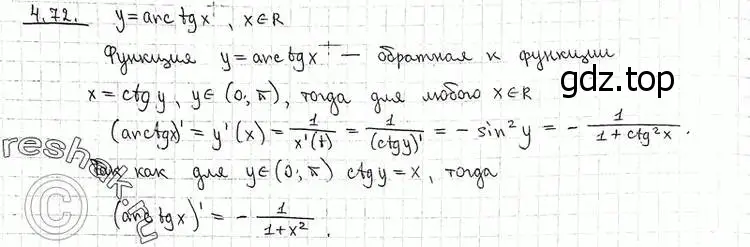 4.72. y = arcctgx, x∈R
Функция y = arcctgx — обратная к функции
gdz.top
x = ctg y, y∈(0, π), тогда для любого x∈R
(arcctgx)' = y'(x) = 1/x'(t) = 1/(ctgy)' = - sin²y = - 1/(1 + ctg²x).
Так как для y∈(0; π) ctgy = x, тогда
(arcctgx)' = - 1/(1+x²).
reshak.ru